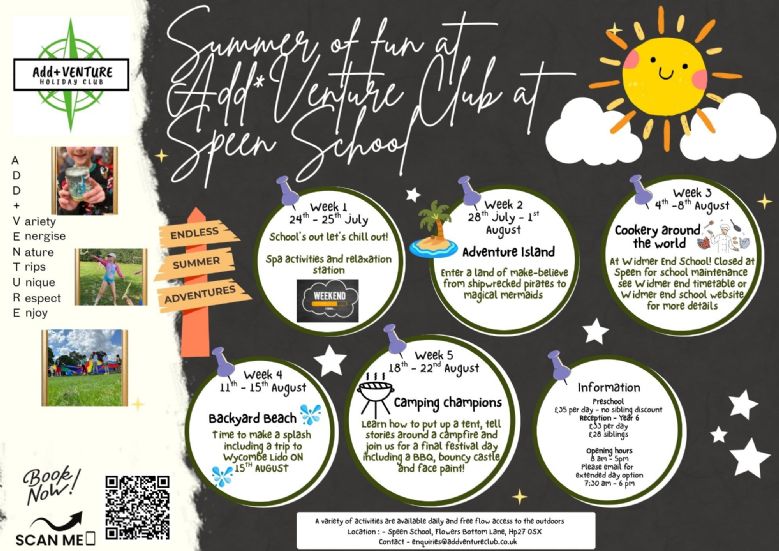 Add+VENTURE
HOLIDAY CLUB
Summer of fun at
Add*Venture Club at
Speen School
A
D
D
+
V ariety
E nergise
N ature
T rips
U nique
R espect
E njoy
ENDLESS
SUMMER
ADVENTURES
Week 1
24th - 25th July
School's out let's chill out!
Spa activities and relaxation
station
WEEKEND
Week 2
28th July - 1st
August
Adventure Island
Enter a land of make-believe
from shipwrecked pirates to
magical mermaids
Week 3
4th -8th August
Cookery around
the world
At Widmer End School! Closed at
Speen for school maintenance
see Widmer end timetable or
Widmer end school website
for more details
Week 4
11th - 15th August
Backyard Beach
Time to make a splash
including a trip to
Wycombe Lido ON
15TH AUGUST
Week 5
18th - 22nd August
Camping champions
Learn how to put up a tent, tell
stories around a campfire and
join us for a final festival day
including a BBQ, bouncy castle
and face paint!
Information
Preschool
£35 per day - no sibling discount
Reception - Year 6
£33 per day
£28 siblings
Opening hours
8 am - 5pm
Please email for
extended day option
7:30 am - 6 pm
Book
Now!
SCAN ME
A variety of activities are available daily and free flow access to the outdoors
Location : - Speen School, Flowers Bottom Lane, Hp27 0SX
Contact - enquiries@addventureclub.co.uk